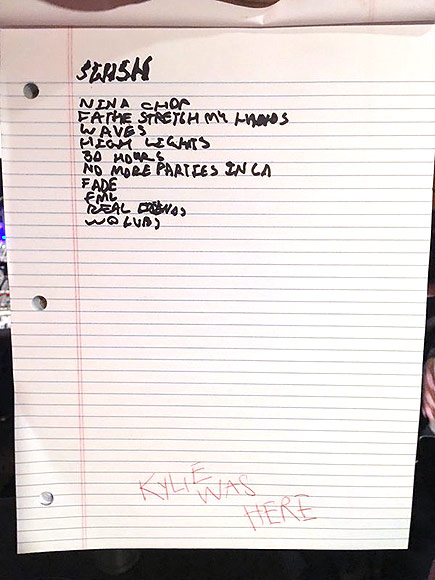 SWISH
NINA CHOP
FATHE STRETCH MY HANDS
WAVES
HIGH LIGHTS
30 HOURS
NO MORE PARTIES IN LA
FADE
FML
REAL FRIENDS
WOLVES
KYLIE
WAS
HERE